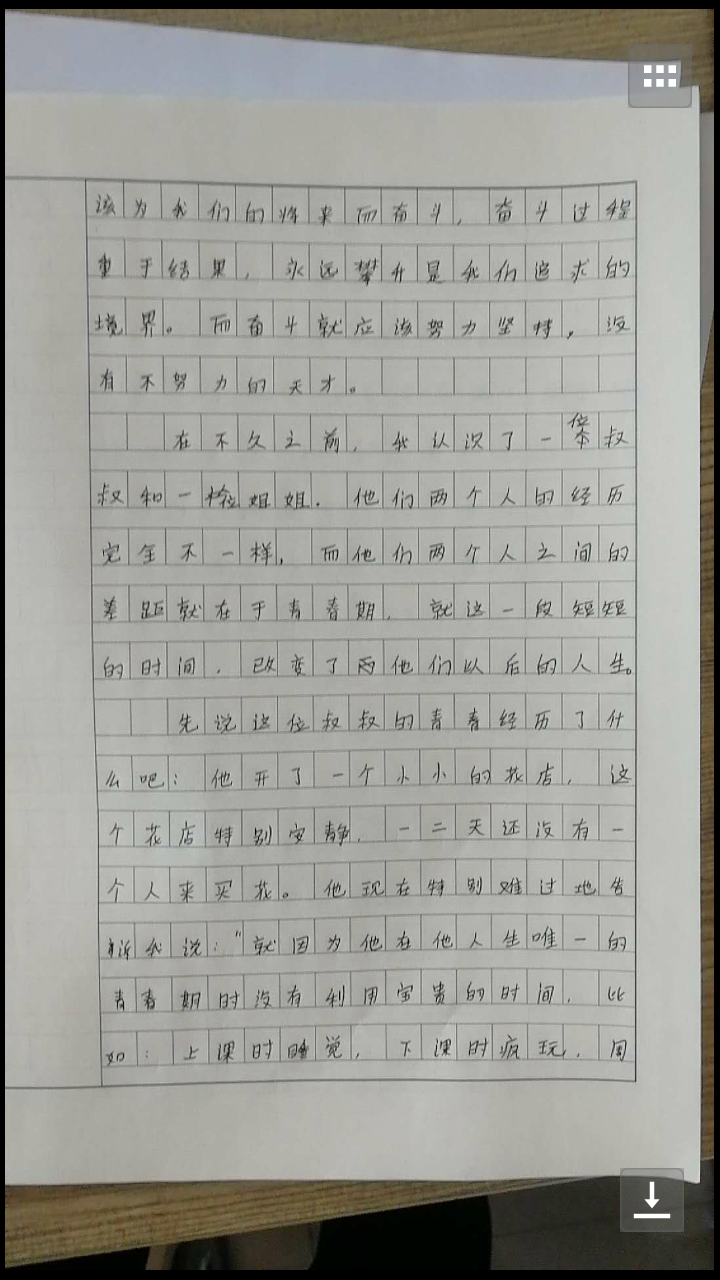 该为我们的将来而奋斗，奋斗过程
重于结果，永远攀升是我们追求的
境界。而奋斗就应该努力坚持，没
有不努力的天才。
在不久之前，我认识了一位叔
叔和一位姐姐。他们两个人的经历
完全不一样，而他们两个人之间的
差距就在于青春期，就这一段短短
的时间，改变了两他们以后的人生。
先说这位叔叔的青青经历了什
么吧：他开了一个小小的花店，这
个花店特别安静，一二天还没有一
个人来买花。他现在特别难过地告
诉我说："就因为他在他人生唯一的
青春期时没有利用宝贵的时间，比
如：上课时睡觉，下课时疯玩，周